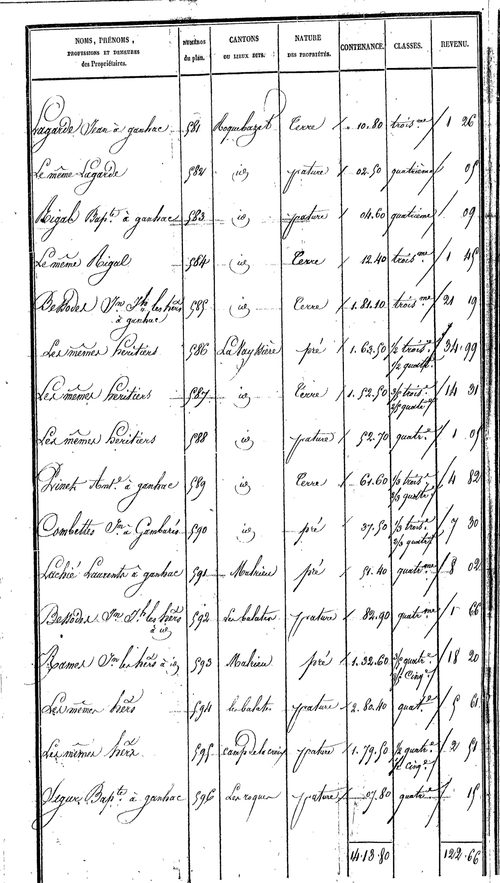 NOMS, PRÉNOMS, PROFESSIONS ET DEMEURES des Propriétaires. | NUMÉROS du plan. | CANTONS OU LIEUX DITS. | NATURE DES PROPRIÉTÉS. | CONTENANCE. | CLASSES. | REVENU.
Lagarde Jean à ganhac 581 Roquebazet Terre 10.80 trois.me 1 26
Le même Lagarde 582 id pature 02.50 quatrieme 05
Rigal Bap.te à ganhac 583 id pature 04.60 quatieme 09
Le même Rigal 584 id Terre 12.40 trois.me 1 45
Bessodes Jn. Jh. les hérs 585 id Terre 1.81.10 trois.me 21 19
à ganhac
Les mêmes héritiers 586 La Vayssière pré 1.63.50 1/2 trois.e 34.99
1/2 quatr.e
Les mêmes héritiers 587 id Terre 1.52.50 3/5 trois.e 14 31
2/5 quatr.e
Les mêmes héritiers 588 id pature 52.70 quatr.e 1 05
Vinet Ant.e à ganhac 589 id Terre 61.60 1/3 trois.e 4 82
2/3 quatr.e
Combettes Jn. à Gambarés 590 id pré 37.50 1/3 trois.e 7 30
2/3 quatr.e
Lachié Laurents à ganhac 591 Mahieu pré 51.40 quatr.me 8 02
Bessodes Jn. Jh. les hérs 592 Les balates pature 82.90 quatr.me 1 66
à id
Rames Jn. les hérs à id 593 Mahieu pré 1.32.60 quatr.e 18 20
cinq.e
Les mêmes hérs 594 les balates pature 2.80.40 quat.e 5 61
Les mêmes hérs 595 camp de la croix pature 1.79.50 1/2 quatr.e 2 51
1/2 cinq.e
Segur Bap.te à ganhac 596 Les roques pature 07.80 quatr.e 15
14.13.80 122.66